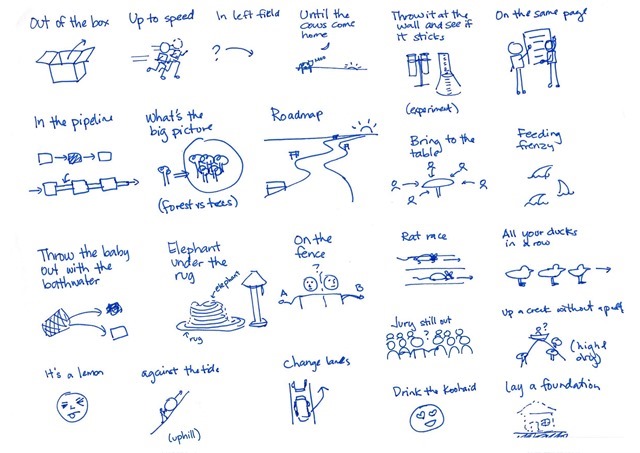 Out of the box
Up to speed
In left field
?
Until the
cows come
home
Throw it at the
wall and see if
it sticks
(experiment)
On the same page
In the pipeline
What's the
big picture
(forest vs trees)
Roadmap
Bring to the
table
Feeding
frenzy
Throw the baby
out with the
bathwater
Elephant
under the
rug
elephant
rug
On the
fence
?
A
B
Rat race
All your ducks
in a row
Jury still out
?
Up a creek without a
?
(high &
dry)
It's a lemon
against the tide
(uphill)
Change lanes
Drink the Koolaid
Lay a foundation